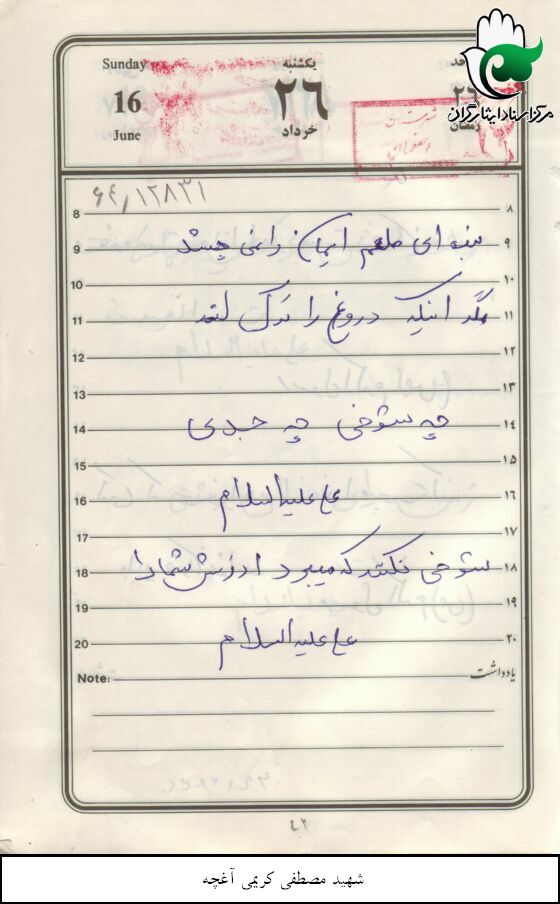 Sunday
16
June
یکشنبه
۲۶
خرداد
احد
۲۶
رمضان
مرکز اسناد ایثارگران
۶۴٫۱۲۸۳۱
8 ۸
بنده ای طعم ایمان را نمی چشد
9 ۹
10 ۱۰
مگر اینکه دروغ را ترک کند
11 ۱۱
12 ۱۲
13 ۱۳
چه شوخی چه جدی
14 ۱۴
15 ۱۵
علی علیه السلام
16 ۱۶
17 ۱۷
شوخی نکنید که میبرد ارزش شما را
18 ۱۸
19 ۱۹
علی علیه السلام
20 ۲۰
Note: یادداشت
۴۲
شهید مصطفی کریمی آغچه